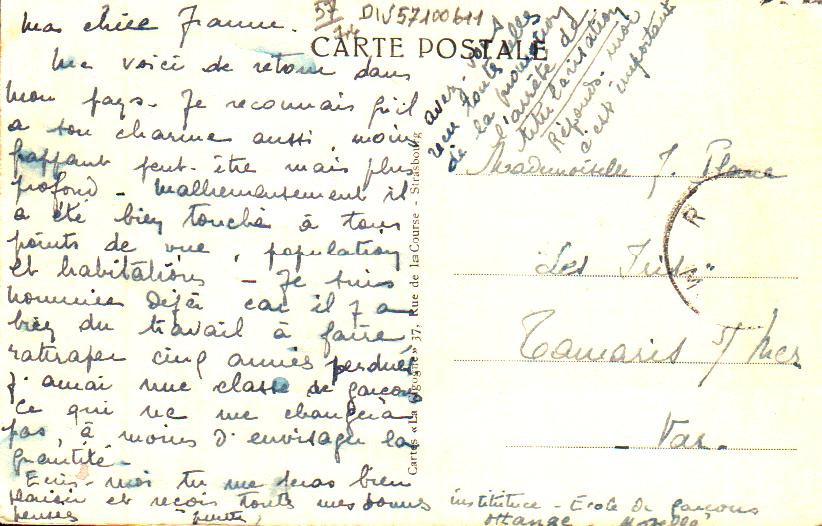 57
DIV57100611
CARTE POSTALE
Ma chère Jeanne.
Me voici de retour dans
mon pays. Je reconnais qu'il
a son charme aussi, moins
frappant peut-être mais plus
profond - Malheureusement il
a été bien touché à tous
points de vue, population
et habitations - Je suis
nommée déjà car il y a
bien du travail à faire
rattraper cinq années perdues
J'aurai une classe de garçons
Ce qui ne me changera
pas, à moins d'envisager la
quantité.
Ecris-moi tu me feras bien
plaisir et reçois toutes mes bonnes
pensées
institutrice - Ecole de garçons
Ottange - Moselle
avez-vous
reçu toutes elles
de la promotion
l'arrêté de
titularisation
Réponds-moi
c'est important
Cartes «La Cigogne» 37, Rue de la Course - Strasbourg
Mademoiselle J. Plane
"Les Iris"
Tamaris s/ Mer
Var.
R
M